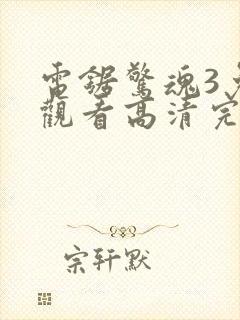 電鋸驚魂3
觀看高清完
宗軒默